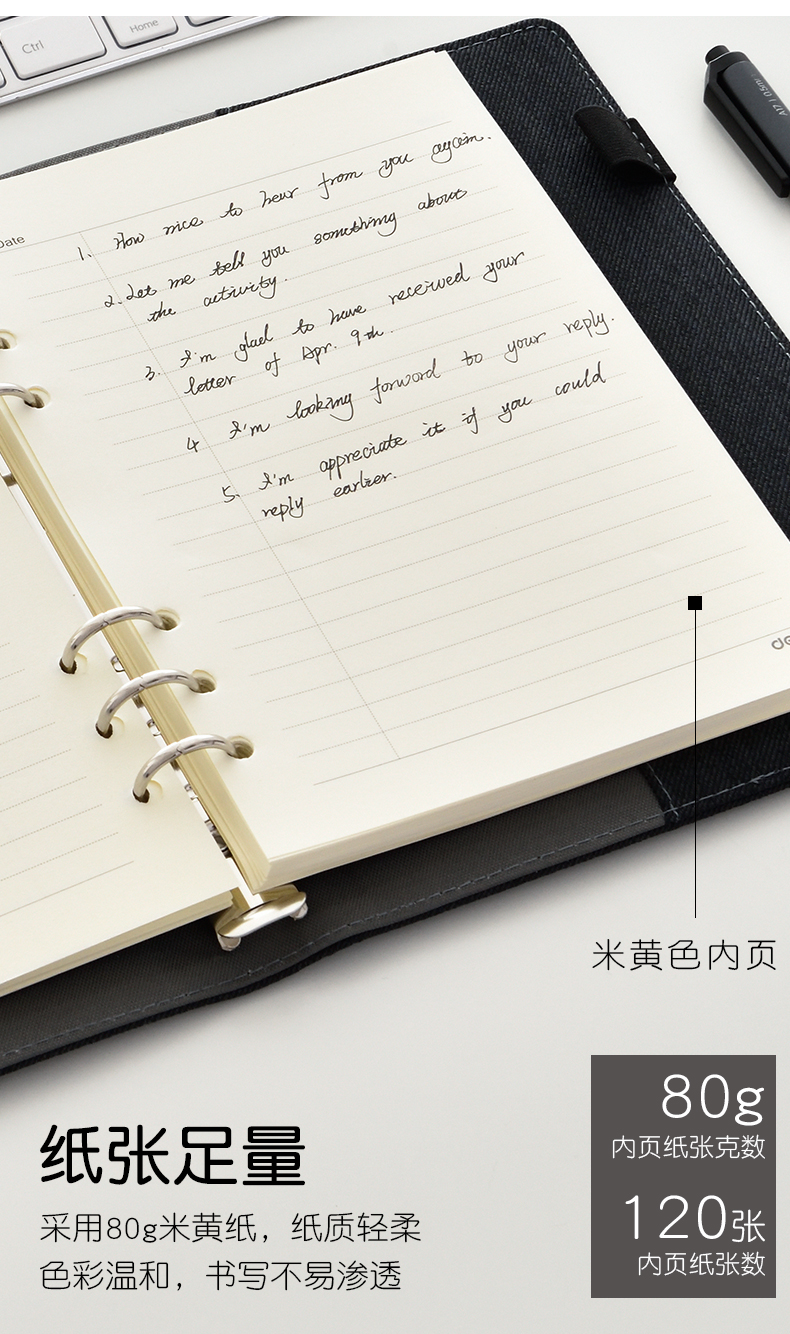 Ctrl
Home
A17 | 0.5m
Date
1. How nice to hear from you
2. Let me tell you something about
the activity.
3. I'm glad to have received your
letter of Apr. 9th.
4 I'm looking forward to your reply.
5. I'm appreciate it if you could
reply earlier.
de
米黄色内页
80g
内页纸张克数
120张
内页纸张数
纸张足量
采用80g米黄纸，纸质轻柔
色彩温和，书写不易渗透